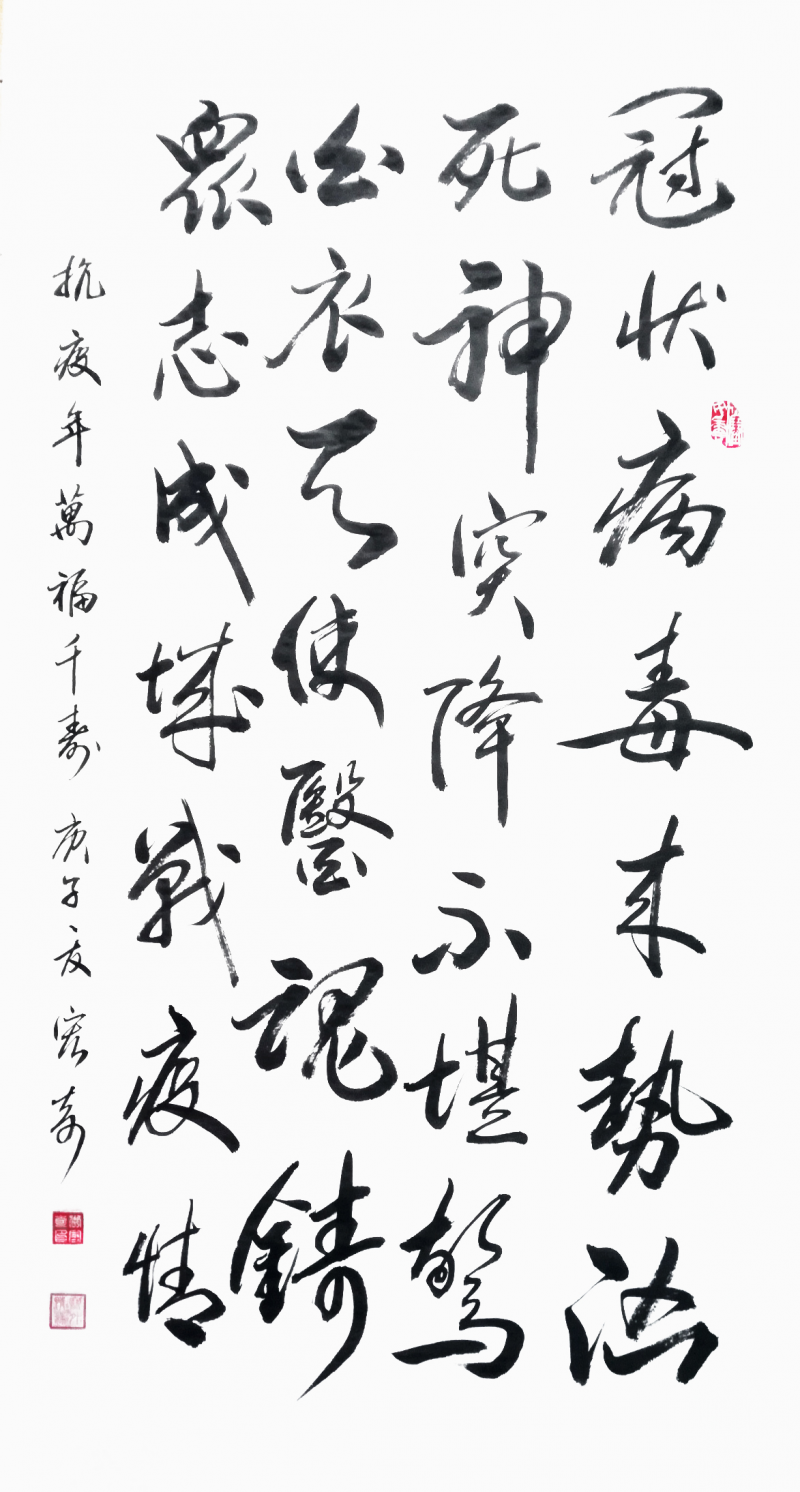 冠状病毒来势汹
死神突降不堪驚
白衣天使醫魂鑄
衆志成城戰疫情
抗疫年萬福千壽 庚子夏 宏奇